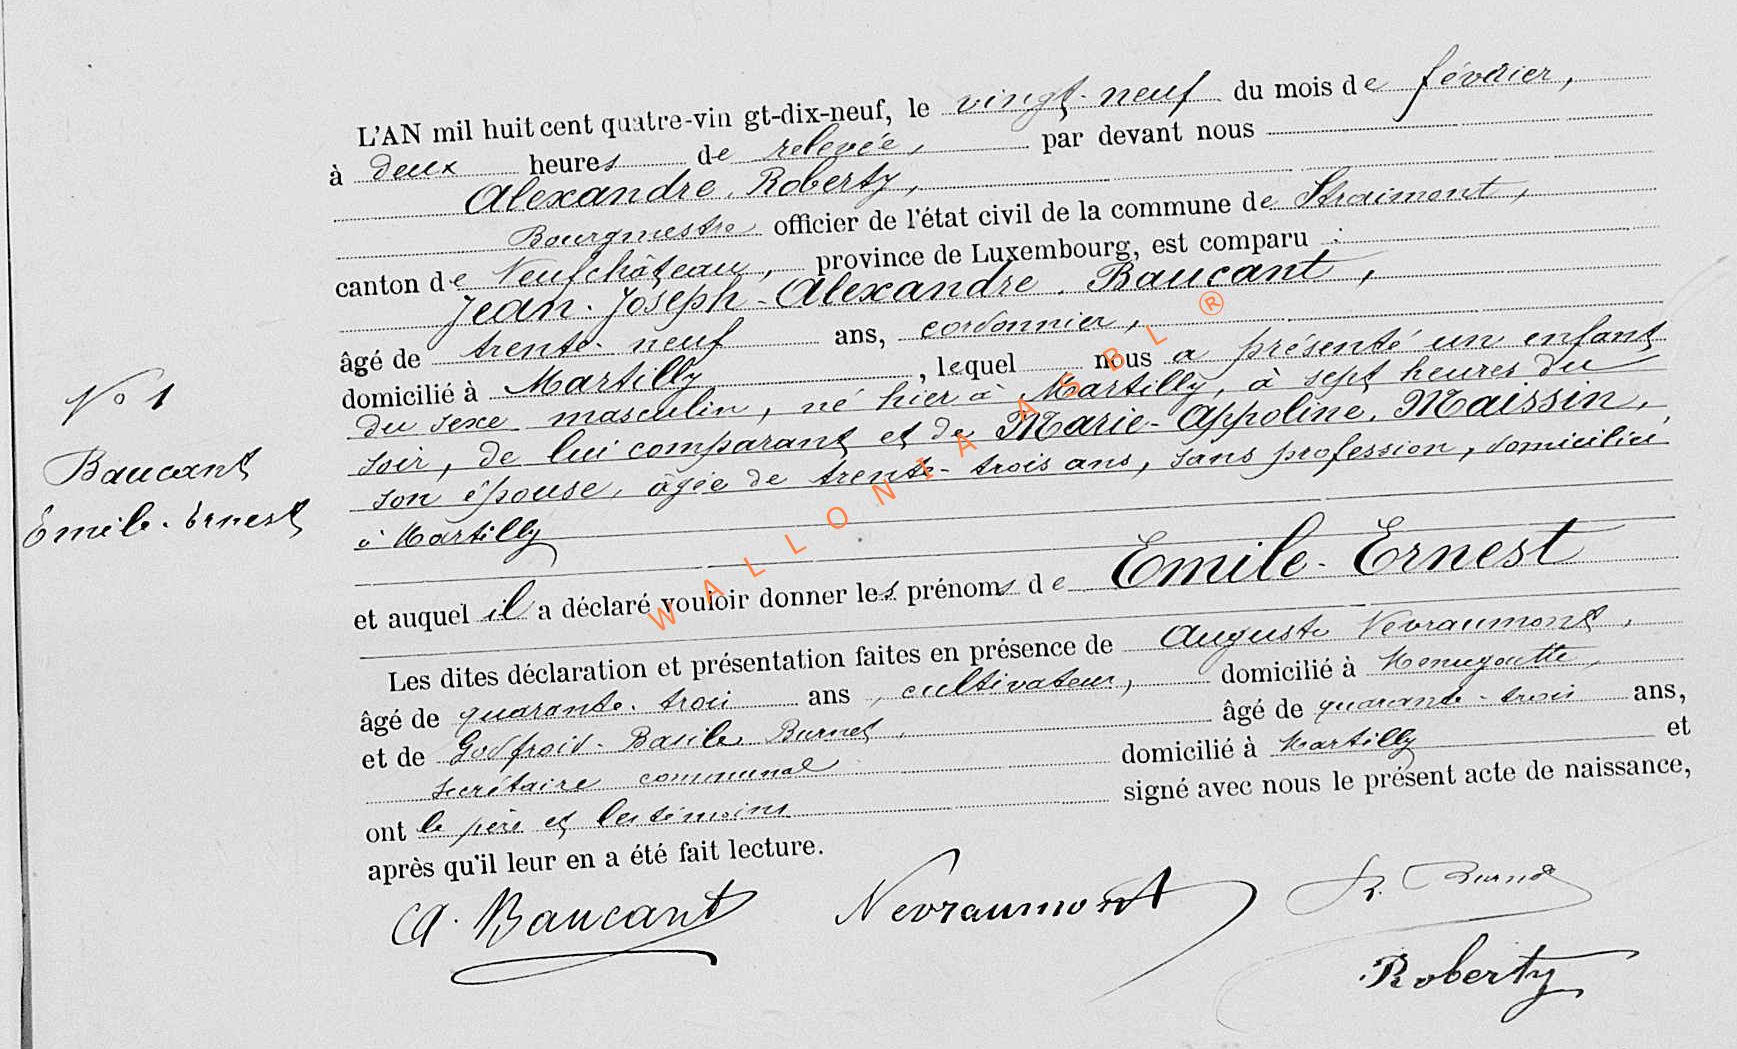 L'AN mil huit cent quatre-vingt-dix-neuf, le vingt-neuf du mois de février,
à deux heures de relevée, par devant nous
Alexandre Roberty,
Bourgmestre officier de l'état civil de la commune de Straimont,
canton de Neufchâteau, province de Luxembourg, est comparu :
Jean-Joseph-Alexandre Baucant,
âgé de trente-neuf ans, cordonnier,
domicilié à Martilly, lequel nous a présenté un enfant
du sexe masculin, né hier à Martilly, à sept heures du
soir, de lui comparant et de Marie-Appoline Maissin,
son épouse, âgée de trente-trois ans, sans profession, domiciliée
à Martilly
N° 1
Baucant
Emile-Ernest
et auquel il a déclaré vouloir donner les prénoms de Emile-Ernest
Les dites déclaration et présentation faites en présence de Auguste Nevraumont,
âgé de quarante-trois ans, cultivateur, domicilié à Menugoutte,
et de Godfroid-Basile Burnet, âgé de quarante-trois ans,
secrétaire communal domicilié à Martilly et
ont le père et les témoins signé avec nous le présent acte de naissance,
après qu'il leur en a été fait lecture.
A. Baucant Nevraumont Burnet
Roberty
WALLONIA ASBL ®